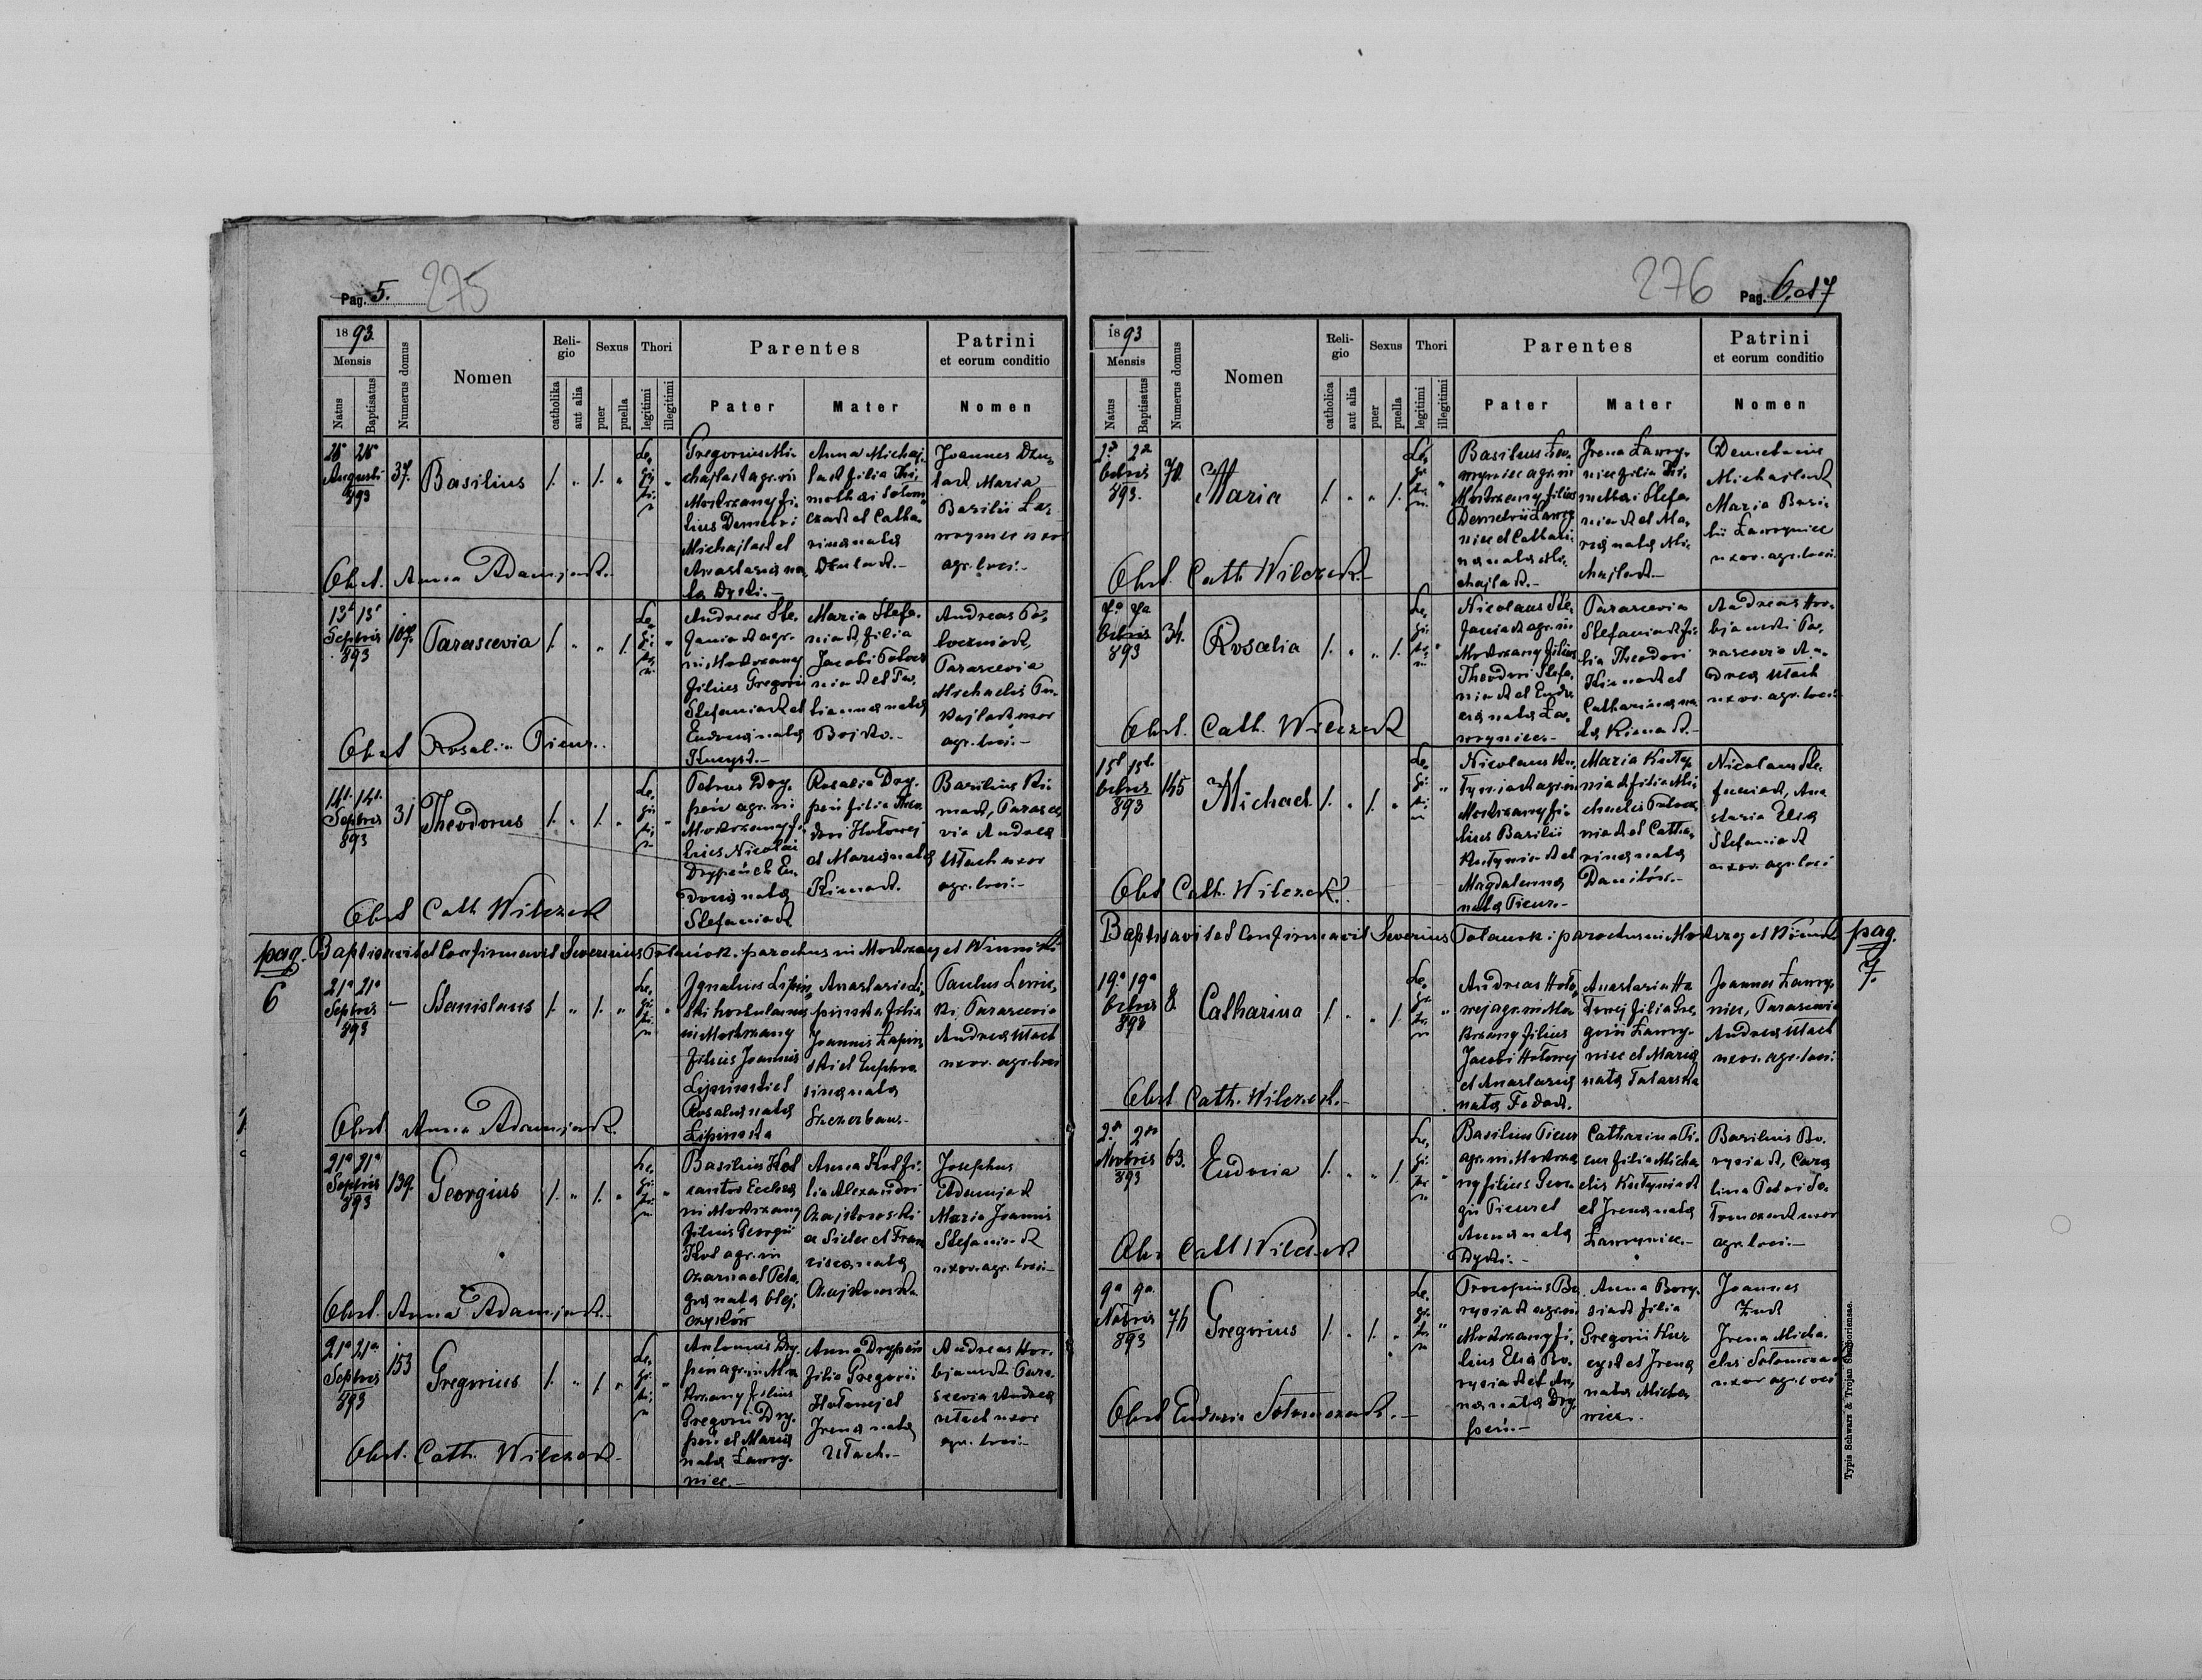 Pag. 5. 275
1893.
Mensis
Natus
Baptisatus
Numerus domus
Nomen
Reli-
gio
catholika
aut alia
Sexus
puer
puella
Thori
legitimi
illegitimi
Parentes
Pater
Mater
Patrini
et eorum conditio
Nomen
Augusti
893
37.
Basilius
Le,
gi
ti,
m
Gregorius Mi-
chajlak agr. in
Mokrzany fi-
lius Demetri
Michajlak et
Anastasia na
ta Dycki.-
Anna Michaj
lak filia Thi,
mothei Solom
czak et Catha
rina nata
Dzulak.-
Joannes Dzu,
lak, Maria
Basilii Ław-
rynice uxor
agr. loci.-
Obst. Anna Adamjak.-
13a 13a
Septbris
893
107.
Parascevia
Le,
gi
ti,
m
Andreas Ste,
faniak agr.
in Mokrzany
filius Gregorii
Stefaniak et
Eudocia nata
Maria Stefa,
niak, filia
Jacobi
niak et Ta,
tianna nata
Bojko.-
Andreas
Parascevia
Michaelis
uxor
agr. loci.-
Obst Rosalia Ticur.
14a 14a
Septbris
893
31
Theodorus
Le,
gi
ti,
m
Petrus Dry,
peń agr. in
Mokrzany fi
lius Nicolai
Drypeń et Eu,
docia nata
Stefaniak
Rosalia Dry,
peń filia Theo
dori Hołowej
et Maria nata
Kimak.
Basilius Ki
mak, Parasce
via Andrea
Utach uxor
agr. loci.-
Obst Cath Wilczek
pag.
6
Baptisavit et Confirmavit Severinus parochus in Mokrzany et
21a 21a
Septbris
893
-
Stanislaus
Le,
gi
ti,
m
Ignatius Lipin,
ski hortulanus
in Mokrzany
filius Joannis
Lipinski et
Rosalia nata
Lipinska
Anastasia Li,
pinska filia
Joannis Łapin
ski et Euphro
sina nata
Szczerban.-
Paulus Lewic,
ki, Parascevia
Andrea Utach
uxor. agr. loci
Obst. Anna Adamjak.
21a 21a
Septbris
893
139.
Georgius
Le,
gi
ti,
m
Basilius Kot
cantor Eccles
in Mokrzany
filius Georgii
Kot agr. in
Czarna et Pela,
gia nata Olej,
Anna Kot fi,
lia Alexandri
Czajkowski
a Sielec et Fran
cisca nata
Czajkowska
Josephus
Adamjak
Maria Joannis
Stefaniak
uxor. agr. loci-
Obst. Anna Adamjak.-
21a 21a
Septbris
893
153
Gregorius
Le,
gi
ti,
m
Antonius Dry,
peń agr. in Mo
krzany filius
Gregorii Dry,
peń et Maria
nata Ławry,
niec.-
Anna Drypeń
filia Gregorii
Hołowej et
Irena nata
Utach.-
Andreas Hor-
bjanski Para,
scevia Andrea
Utach uxor
agr. loci.-
Obst. Cath. Wilczek.-
276 Pag. 6. et 7
1893
Mensis
Natus
Baptisatus
Numerus domus
Nomen
Reli-
gio
catholica
aut alia
Sexus
puer
puella
Thori
legitimi
illegitimi
Parentes
Pater
Mater
Patrini
et eorum conditio
Nomen
2a 2a
Octbris
893.
Maria
Le,
gi
ti,
m
Basilius Ław
rynice agr. in
Mokrzany filius
Demetrii Ławry
niec et Cathari
na nata Mi-
chajlak.-
Irena Ławry-
niec filia Thi,
mothei Stefa
niak et Ma,
ria nata Mi-
chajlak.-
Demetrius
Michajlak
Maria Basi-
lii Ławryniec
uxor. agr. loci.
Obst. Cath Wilczek.-
7a 7a
Octbris
893
34.
Rosalia
Le,
gi
ti,
m
Nicolaus Ste,
faniak agr. in
Mokrzany filius
Theodori Stefa,
niak et Eudo
cia nata Ła-
wryniec.-
Parascevia
Stefaniak fi-
lia Theodori
Kimak et
Catharina na
ta Kimak.-
Andreas Hor-
bjanski Pa,
rascevia An-
drea Utach
uxor. agr. loci.
Obst. Cath. Wilczek
15a 15a
Octbris
893
145
Michael
Le,
gi
ti
m
Nicolaus Ku,
tyniak agr. in
Mokrzany fi-
lius Basilii
Kutyniak et
Magdalena
nata Ticur.-
Maria Kuty,
niak filia Mi
chaelis
niak et Catha,
rina nata
Daniłów.-
Nicolaus Ste,
faniak, Ana
stasia Elia
Stefaniak
uxor. agr. loci
Obst Cath. Wilczek.
Baptisavit et Confirmavit Severius parochus in Mokrzany et
pag.
7.
19a 19a
Octbris
893
8
Catharina
Le,
gi
ti,
m
Andreas Hoło,
wej agr. in Mo
krzany filius
Jacobi Hołowej
et Anastasia
nata Fedak.
Anastasia Ho
łowej filia Gre,
gorii Ławry-
niec et Maria
nata Tatarska
Joannes Ławry,
niec, Parascevia
Andrea Utach
uxor. agr. loci.
Obst Cath. Wilczek.-
2a 2a
Novbris
893
63.
Eudocia
Le,
gi,
ti,
m
Basilius Ticur
agr. in Mokrza
ny filius Geor-
gii Ticur et
Anna nata
Dycki.-
Catharina Ti,
cur filia Micha
elis Kutyniak
et Irena nata
Ławryniec.-
Basilius Bo,
rysiak, Caro
lina Petri So,
lomczak uxor
agr. loci.-
Obst Cath Wilczek
9a 9a
Novbris
893
76
Gregorius
Le,
gi
ti,
m
Procopius Bo
rysiak agr. in
Mokrzany fi,
lius Elia Bo,
rysiak et An,
na nata Dry
peń.-
Anna Bory,
siak filia
Gregorii
et Irena
nata Micha
Joannes
Irena Micha
elis Solomczak
uxor agr. loci
Obst Eudocia Solomczak.-
Typis Schwarz & Trojan Samboriensae.